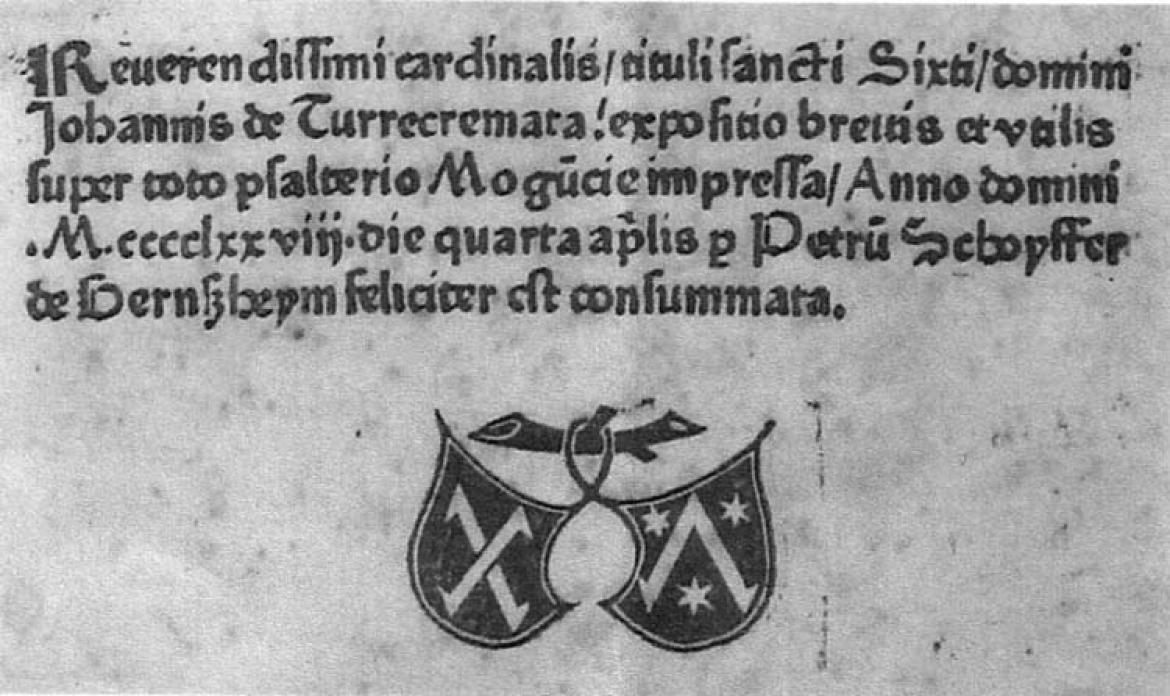 Reuerendissimi cardinalis/tituli sancti Sixti/domini
Johannis de Turrecremata/expositio breuis et vtilis
super toto psalterio Mogūcie impressa/Anno domini
.M.cccclxxviij.die quarta ap̄lis ꝑ Petrū Schoyffer
de Gernßheym feliciter est consummata.